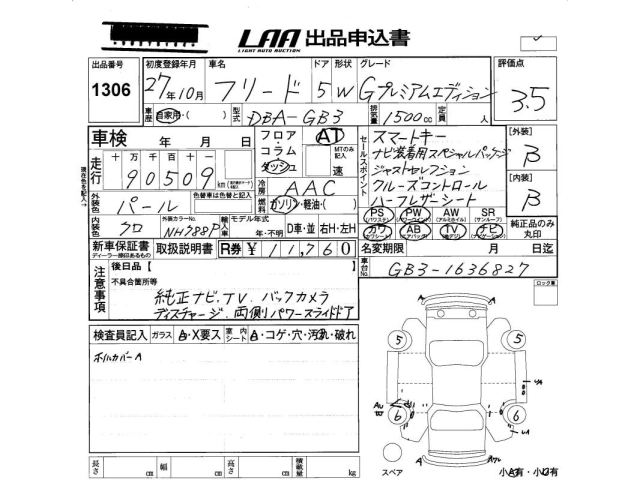 LAA 出品申込書
LIGHT AUTO AUCTION
出品番号 1306
初度登録年月 27年10月
車名 フリード
ドア 形状 5W
グレード Gプレミアムエディション
評価点 3.5
車歴 自家用・( )
型式 DBA-GB3
排気量 1500cc
定員 人
車検 年 月 日
走行 十万千百十一
90509 km
フロア・コラム・ダッシュ
AT
MTのみ記入 速
冷房 AAC
燃料 ガソリン・軽油・( )
セールスポイント
スマートキー
ナビ装着用スペシャルパッケージ
ジャストセレクション
クルーズコントロール
ハーフレザーシート
[外装] B
[内装] B
外装色 パール
色替車は色替と記入
内装色 クロ
外装カラーNo. NH788P
輸入車 モデル年式 年・不明
D車・並 右H・左H
PS PW AW SR
(パワステ) (パワーウインド) (アルミホイル) (サンルーフ)
カワ AB TV ナビ
(本革シート) (エアバッグ) (地デジ) (ナビゲーション)
純正品のみ丸印
新車保証書 取扱説明書
ディーラー捺印あるもの
R券 ¥ 11,760
名変期限 月 日迄
車台No. GB3-1636827
注意事項
後日品【 】
不具合箇所等
純正ナビ.TV バックカメラ
ディスチャージ、両側パワースライドドア
ロック車
検査員記入 ガラス A・X要ス 室内シート A・コゲ・穴・汚れ・破れ
ホイルカバーA
5 5
6 6
スペア
小A有・小U有
長さ cm 幅 cm 高さ cm 積載量 kg